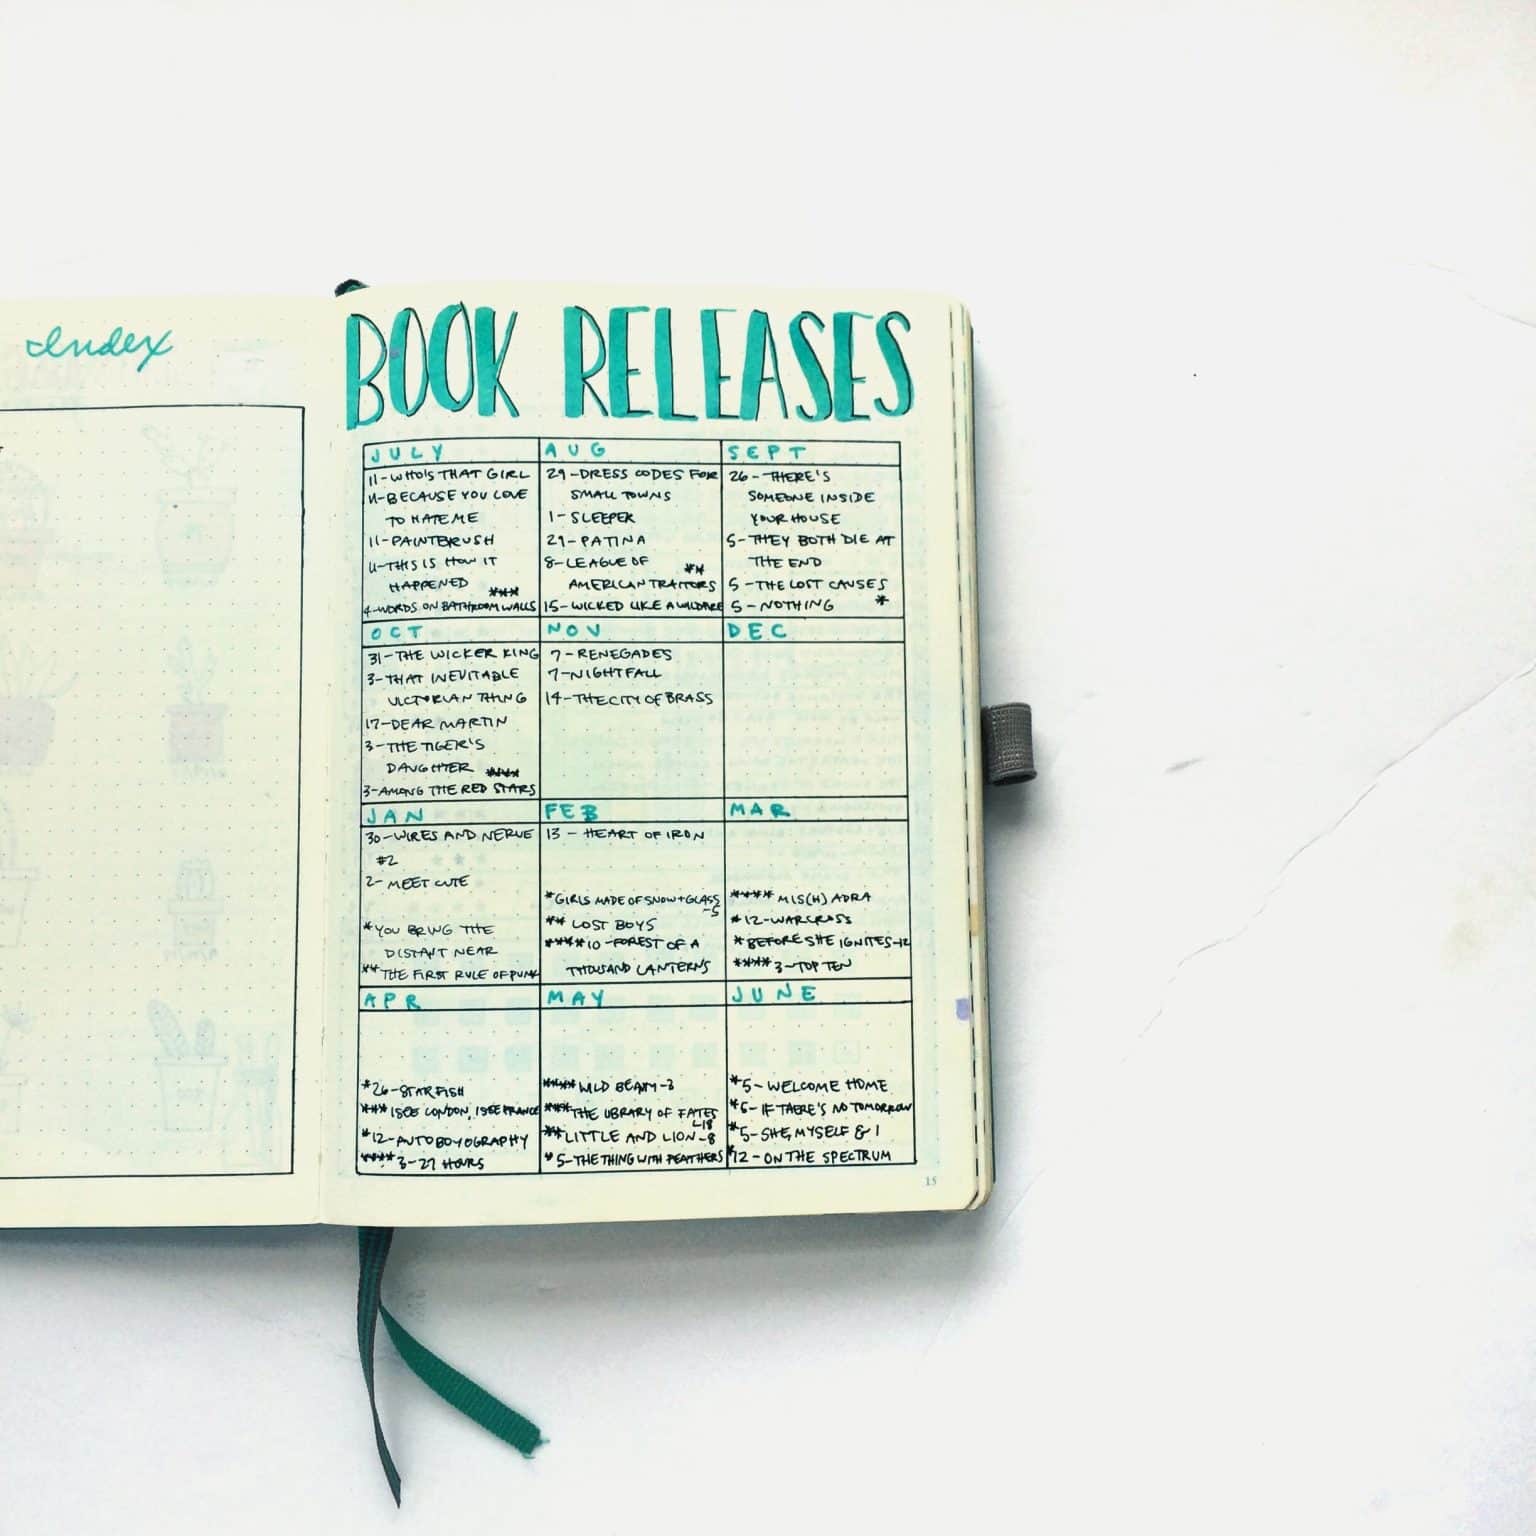 Index
BOOK RELEASES
JULY
11-WHO'S THAT GIRL
11-BECAUSE YOU LOVE
TO HATE ME
11-PAINTBRUSH
11-THIS IS HOW IT
HAPPENED ***
4-WORDS ON BATHROOM WALLS
AUG
29-DRESS CODES FOR
SMALL TOWNS
1-SLEEPER
29-PATINA
8-LEAGUE OF **
AMERICAN TRAITORS
15-WICKED LIKE A WILDFIRE
SEPT
26-THERE'S
SOMEONE INSIDE
YOUR HOUSE
5-THEY BOTH DIE AT
THE END
5-THE LOST CAUSES
5-NOTHING *
OCT
31-THE WICKER KING
3-THAT INEVITABLE
VICTORIAN THING
17-DEAR MARTIN
3-THE TIGER'S
DAUGHTER ****
3-AMONG THE RED STARS
NOV
7-RENEGADES
7-NIGHTFALL
14-THE CITY OF BRASS
DEC
JAN
30-WIRES AND NERVE
#2
2-MEET CUTE
*YOU BRING THE
DISTANT NEAR
**THE FIRST RULE OF PUNK
FEB
13-HEART OF IRON
*GIRLS MADE OF SNOW+GLASS
-5
** LOST BOYS
****10-FOREST OF A
THOUSAND LANTERNS
MAR
**** MIS(H)ADRA
*12-WARCROSS
*BEFORE SHE IGNITES-12
**** 3-TOP TEN
APR
*26-STARFISH
***I SEE LONDON, I SEE FRANCE
*12-AUTOBOYOGRAPHY
****3-27 HOURS
MAY
****WILD BEAUTY-3
***THE LIBRARY OF FATES
-18
**LITTLE AND LION-8
*5-THE THING WITH FEATHERS
JUNE
*5-WELCOME HOME
*6-IF THERE'S NO TOMORROW
*5-SHE, MYSELF & I
*12-ON THE SPECTRUM
15